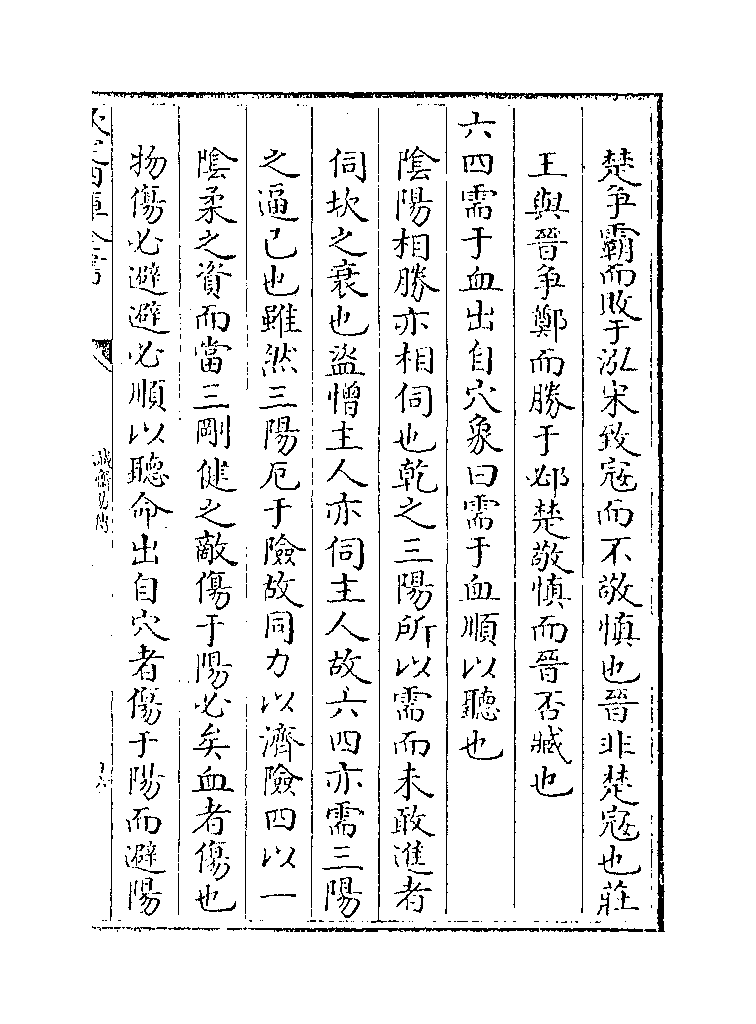 楚爭霸而敗于泓宋致寇而不敬慎也晉非楚寇也莊
王與晉爭鄭而勝于邲楚敬慎而晉否臧也
六四需于血出自穴象曰需于血順以聽也
陰陽相勝亦相伺也乾之三陽所以需而未敢進者
伺坎之衰也盜憎主人亦伺主人故六四亦需三陽
之逼己也雖然三陽厄于險故同力以濟險四以一
陰柔之資而當三剛健之敵傷于陽必矣血者傷也
物傷必避避必順以聽命出自穴者傷于陽而避陽
欽定四庫全書
誠齋易傳